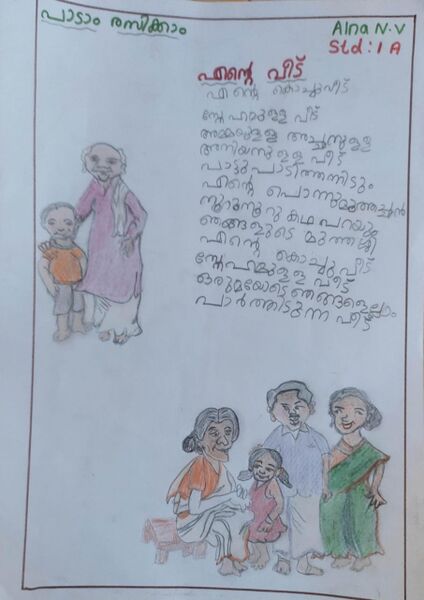 പാടാം രസിക്കാം
Alna N.V
Std : 1 A
എന്റെ വീട്
എന്റെ കൊച്ചുവീട്
സ്നേഹമുള്ള വീട്
അമ്മയുള്ള അച്ഛനുള്ള
അനിയനുള്ള വീട്
പാട്ടുപാടിത്തന്നിടും
എന്റെ പൊന്നുമുത്തച്ഛൻ
നൂറുനൂറു കഥ പറയും
ഞങ്ങളുടെ മുത്തശ്ശി
എന്റെ കൊച്ചു വീട്
സ്നേഹമുള്ള വീട്
ഒരുമയോടെ ഞങ്ങളെല്ലാം
പാർത്തിടുന്ന വീട്